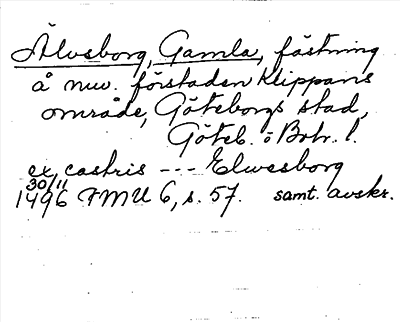 Älvsborg, Gamla, fästning
å nuv. förstaden Klippans
område, Göteborgs stad,
Göteb. o Boh. l.
ex castris --- Elwesborg
30/11
1496 FMU 6, s. 57. samt. avskr.